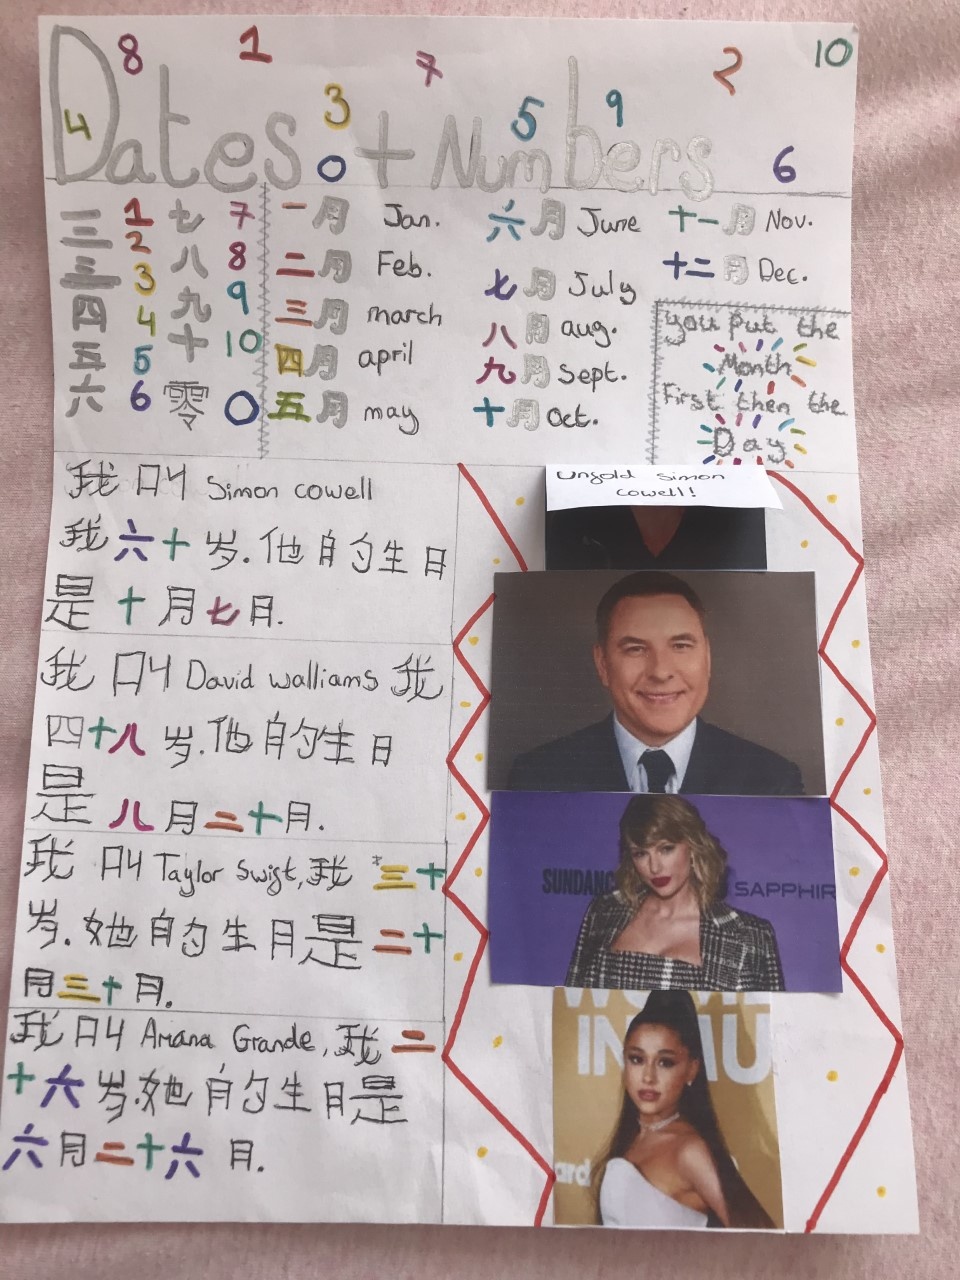 8 1 7 2 10
4 3 5 9
Dates + Numbers
0 6
一 1 七 7
二 2 八 8
三 3 九 9
四 4 十 10
五 5
六 6 零 0
一月 Jan.
二月 Feb.
三月 march
四月 april
五月 may
六月 June
七月 July
八月 aug.
九月 sept.
十月 Oct.
十一月 Nov.
十二月 Dec.
You put the
Month
First then the
Day
我叫 Simon cowell
我六十岁.他的生日
是十月七月.
Unfold simon
cowell!
我叫 David walliams 我
四十八岁.他的生日
是八月二十月.
我叫 Taylor Swift,我三十
岁.她的生月是二十
月三十月.
我叫 Ariana Grande,我二
十六岁.她的生日是
六月二十六月.
SUNDANC SAPPHIR
IN MU
ard